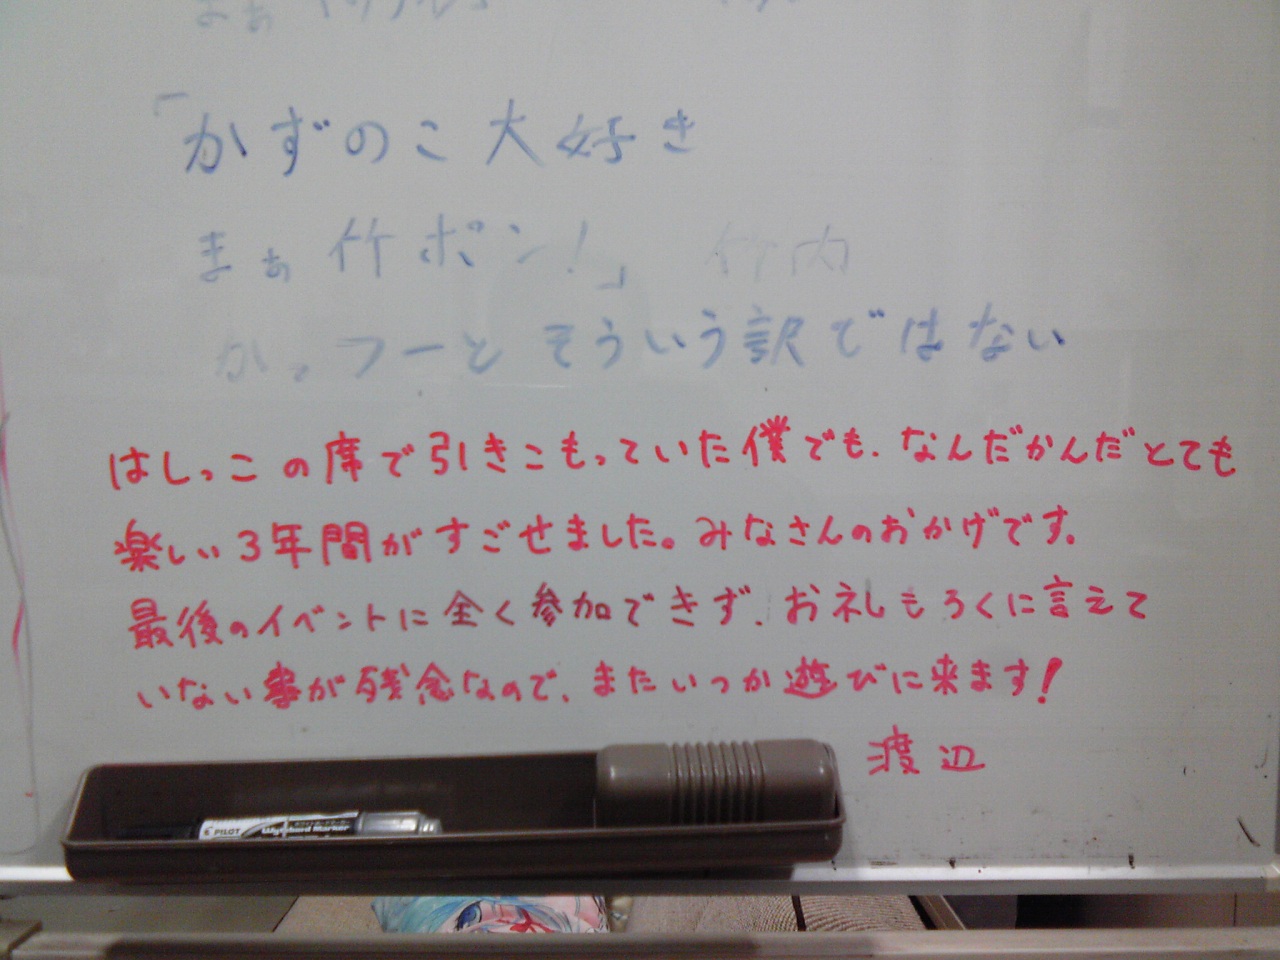 まぁ
「かずのこ大好き
まぁ竹ポン!」 竹内
そういう訳ではない
はしっこの席で引きこもっていた僕でも、なんだかんだとても
楽しい3年間がすごせました。みなさんのおかげです。
最後のイベントに全く参加できず、お礼もろくに言えて
いない事が残念なので、またいつか遊びに来ます!
渡辺
PILOT
Wyteboard Marker